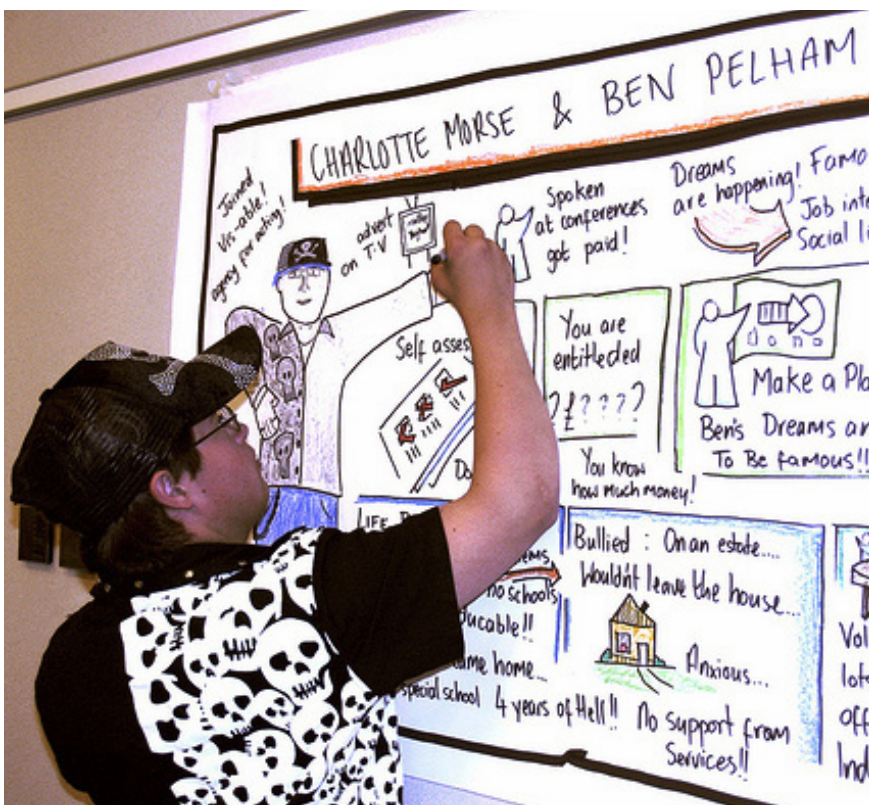 CHARLOTTE MORSE & BEN PELHAM
Joined
Vis-able!
agency for acting!
advert
on T.V
Spoken
at conferences
got paid!
Dreams
are happening!
Famo
Job inte
Social li
Self asses
Do
You are
entitleded
? £ ? ? ? ?
You know
how much money!
Make a Pla
Ben's Dreams ar
To Be famous!!
LIFE
EMS
no schools
ducable!!
ame home...
special school 4 years of Hell!!
Bullied : On an estate....
Wouldn't leave the house...
Anxious...
No support from
Services!!
Vol
lote
off
Ind